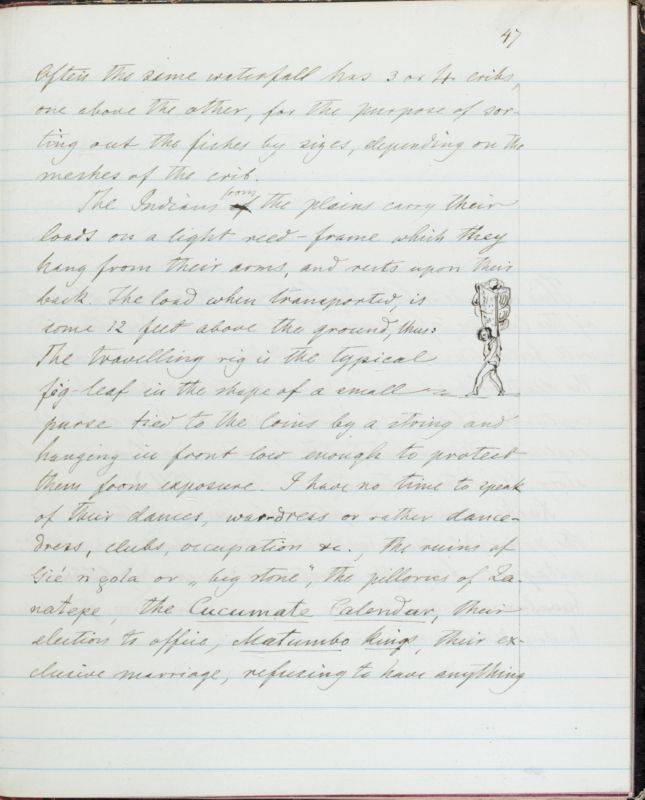 47
Often the same waterfall has 3 or 4 cribs,
one above the other, for the purpose of sor-
ting out the fishes by sizes, depending on the
meshes of the crib.
The Indians from the plains carry their
loads on a light reed-frame which they
hang from their arms, and rests upon their
back. The load when transported, is
some 12 feet above the ground, thus:
The travelling rig is the typical
fig-leaf in the shape of a small
purse tied to the loins by a string and
hanging in front low enough to protect
them from exposure. I have no time to speak
of their dances, war-dress or rather dance-
dress, clubs, occupation &c., the ruins of
Gié n'gola or „big stone", the pillories of Za-
natepe, the Cucumate Calendar, their
election to office, Matumbo kings, their ex-
clusive marriage, refusing to have anything